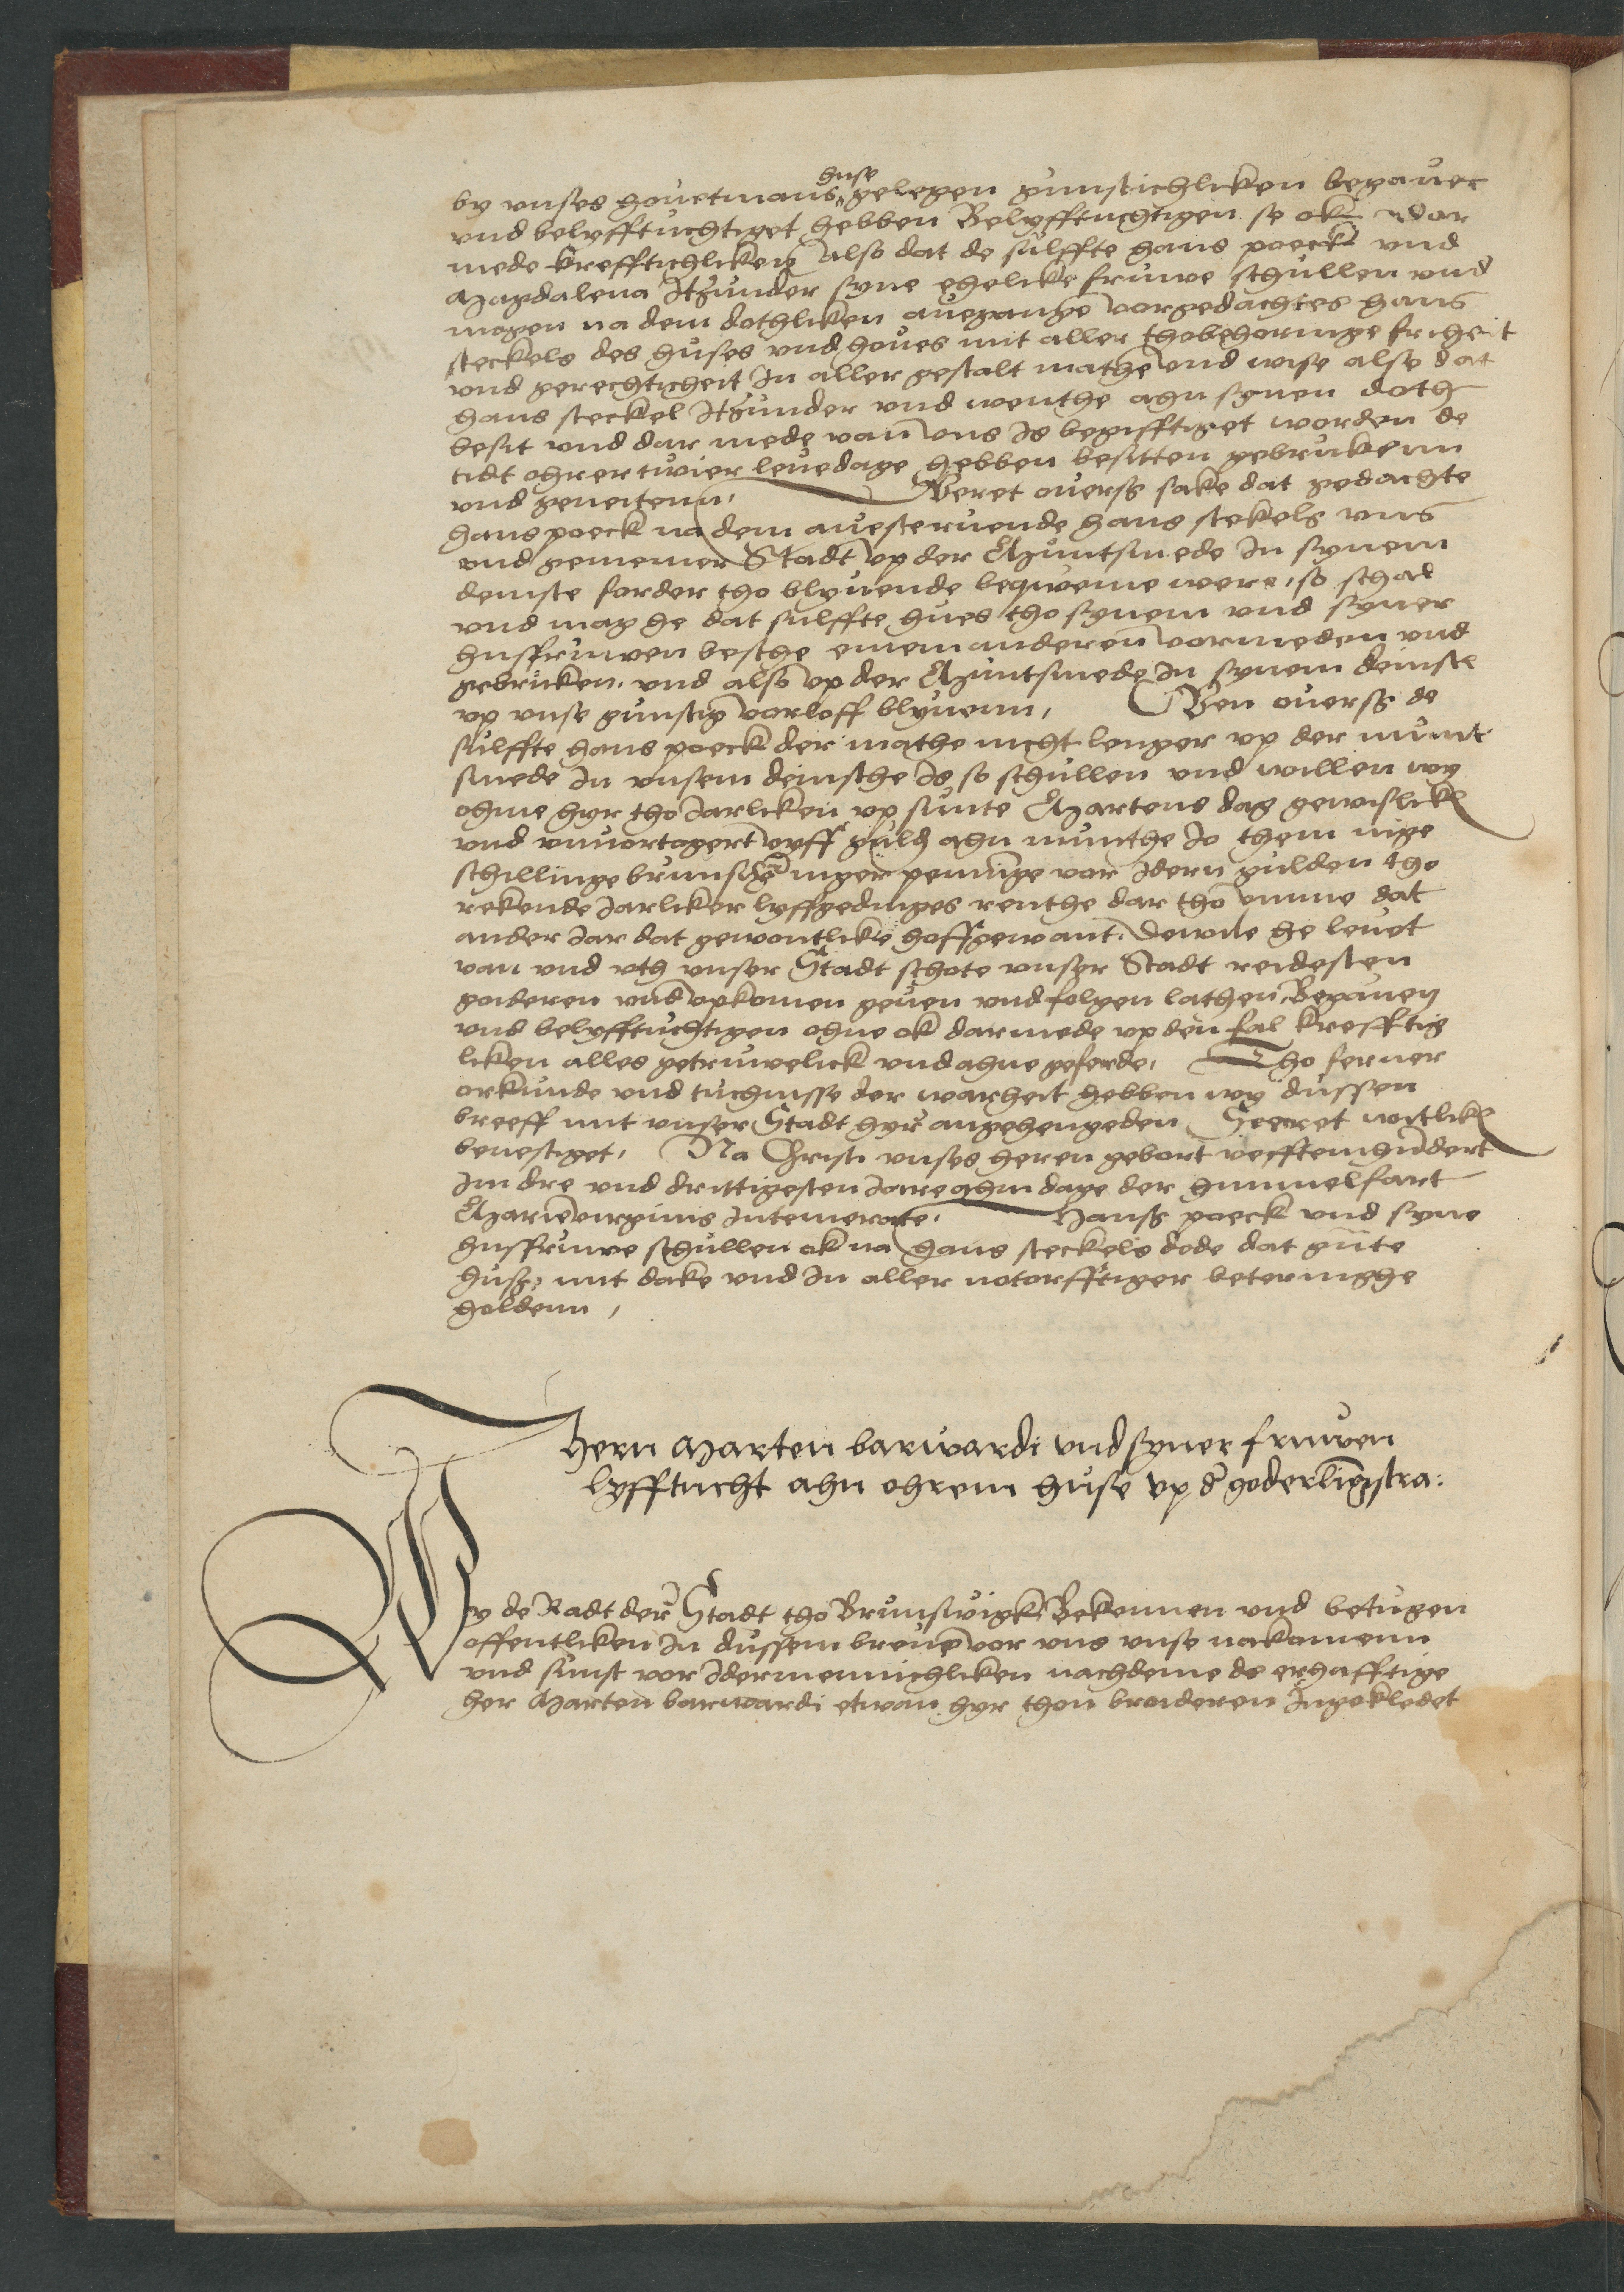 by vnses houetmans huse gelegen gunstichliken begauet
vnd belyfftuchtiget hebben Belyfftuchtigen se ok dar
mede krefftichliken Also dat de sulffte hans poeck vnd
Magdalena Itzunder syne ehelike fruwe schullen vnd
mogen na dem dothliken auegange vorgedachtes hans
steckels des huses vnd houes mit aller thobehoringe friheit
vnd gerechticheit In aller gestalt mathe vnd wise also dat
hans steckel Itzunder vnd wenthe ahn synen doth
besit vnd dar mede van vns Is begifftiget worden de
tidt ohrer twier leuedage hebben besitten gebrukenn
vnd geneitenn, Weret ouerst sake dat gedachte
hans poeck na dem auesteruende hans stekels vns
vnd gemener Stadt vp der Muntsmede In synem
deinste forder tho blyuende bequeme were, so schal
vnd mag he dat sulffte hues tho synem vnd syner
husfruwen besthe einem anderen vormeden vnd
gebruken. vnd also vp der Muntsmede In synem deinste
vp vnse gunstig vorloff blyuenn, Wen ouerst de
sulffte hans poeck der mathe nicht lenger vp der munt
smede In vnsem deinsthe Is so schullen vnd willen wy
ohme hyr tho Jarliken vp sunte Martens dag gewislick
vnd vnuortogert vyff guld ahn munthe Jo them nige
schillinge brunschwe niger penninge vor Idern gulden tho
rekende Jarliker lyffgedinges renthe dar tho vmme dat
ander Jar dat gewontlike hoffgewant. dewile he leuet
van vnd vth vnser Stadt schote vnser Stadt reidesten
goideren vnd vpkomen geuen vnd folgen lathen, Begauen
vnd belyfftuchtigen ohne ok darmede vp den fal krefftig
liken alles getruwelick vnd ahne geferde, Tho ferner
orkunde vnd tuchnisse der warheit hebben wy dussen
breeff mit vnser Stadt hyr angehengeden Secret witlick
beuestiget, Na Christi vnses heren gebort veffteinhundert
Im dre vnd drittigesten Jare ahm dage der himmelfart
Marie virginis Intemerate. Hanss poeck vnd syne
husfruwe schullen ok na hans steckels dode dat gute
huss, mit dake vnd In aller notorfftiger beteringhe
holdenn,
Hern Marten barwardi vnd syner fruwen
lyfftucht ahn ohrem huse vp der goderlingstra:
Wy de Radt der Stadt tho Brunswigk Bekennen vnd betugen
offentliken In dussem breue vor vns vnse nakomenn
vnd sunst vor Idermennichliken nachdeme de erhafftige
her Marten barwardi etwan hyr thon broideren Ingekledet